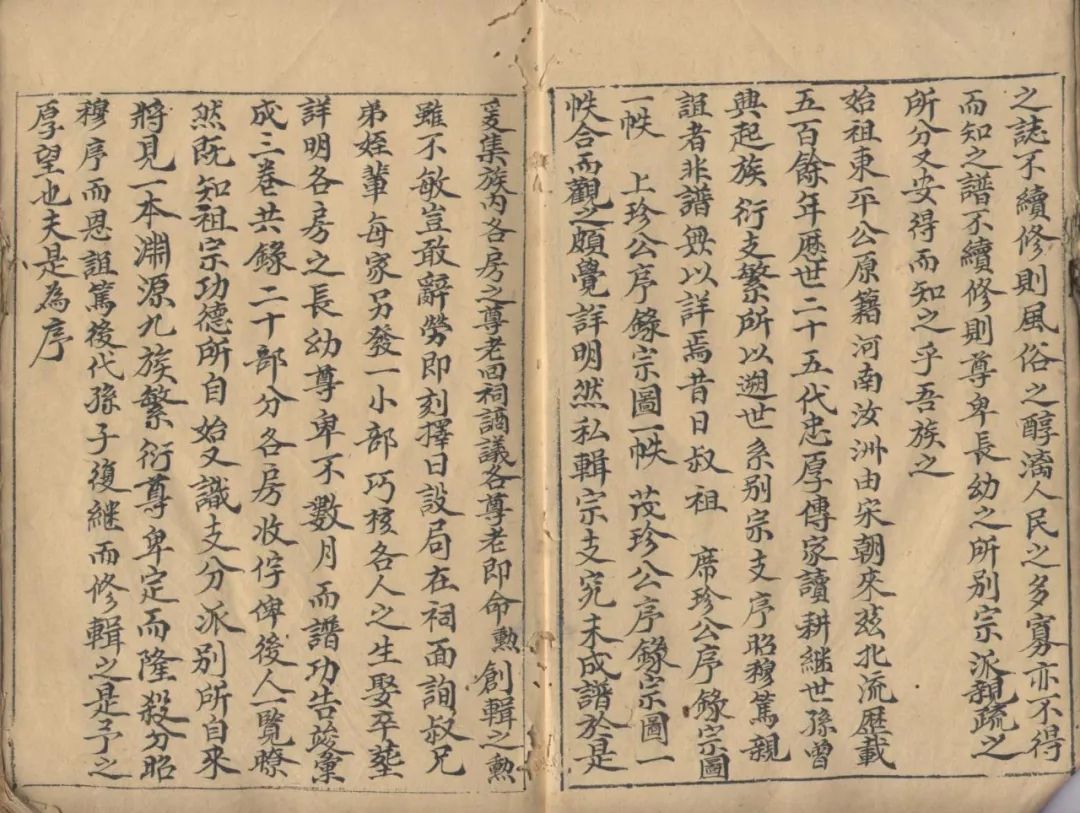 之誌不續修則風俗之醇漓人民之多寡亦不得
而知之譜不續修則尊卑長幼之所別宗派親疏之
所分又安得而知之乎吾族之
始祖東平公原籍河南汝洲由宋朝來兹北流歷載
五百餘年歷世二十五代忠厚傳家讀耕継世孫曾
興起族衍支繁所以遡世系别宗支序昭穆篤親
誼者非譜毋以詳焉昔日叔祖 席珍公序錄宗圖
一帙 上珍公序錄宗圖一帙 茂珍公序錄宗圖一
帙合而觀之頗覺詳明然私輯宗支究未成譜於是
爰集族内各房之尊老回祠酌議各尊老即命勲創輯之勲
雖不敏豈敢辭勞即刻擇日設局在祠面詢叔兄
弟姪輩每家另發一小部巧核各人之生娶卒塟
詳明各房之長幼尊卑不數月而譜功告竣彙
成三卷共錄二十部分各房收伫俾後人一覽瞭
然既知祖宗功德所自始又識支分派別所自來
將見一本淵源九族繁衍尊卑定而隆殺分昭
穆序而恩誼篤後代孫子復継而修輯之是予之
厚望也夫是為序